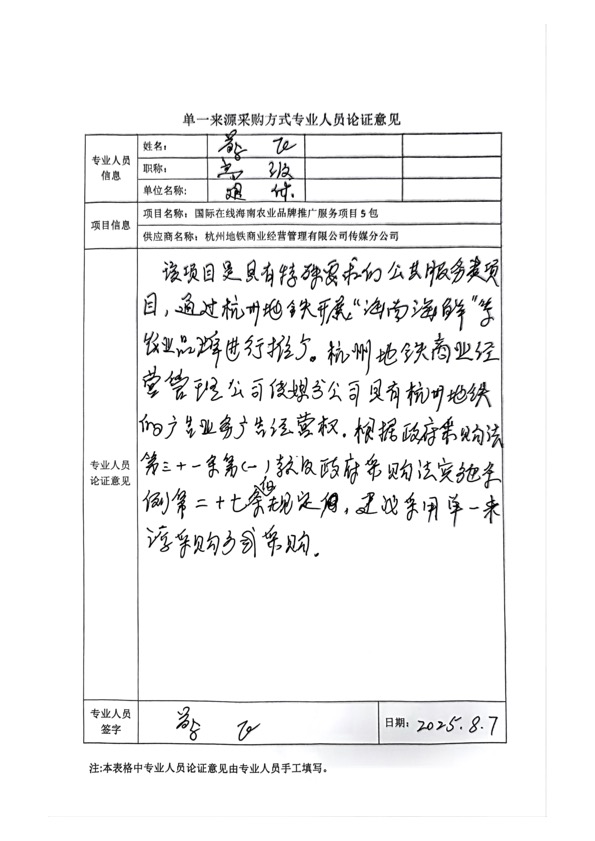 单一来源采购方式专业人员论证意见
专业人员信息
姓名:
职称: 高级
单位名称: 退休
项目信息
项目名称: 国际在线海南农业品牌推广服务项目5包
供应商名称: 杭州地铁商业经营管理有限公司传媒分公司
专业人员论证意见
该项目是具有特殊要求的公共服务类项
目，通过杭州地铁开展“海南海鲜”等
农业品牌进行推广。杭州地铁商业经
营管理公司传媒分公司具有杭州地铁
的广告业务广告经营权。根据政府采购法
第三十一条第(一)款及政府采购法实施条
例第二十七条的规定，建议采用单一来
源采购方式采购.
专业人员签字
日期: 2025.8.7
注:本表格中专业人员论证意见由专业人员手工填写。